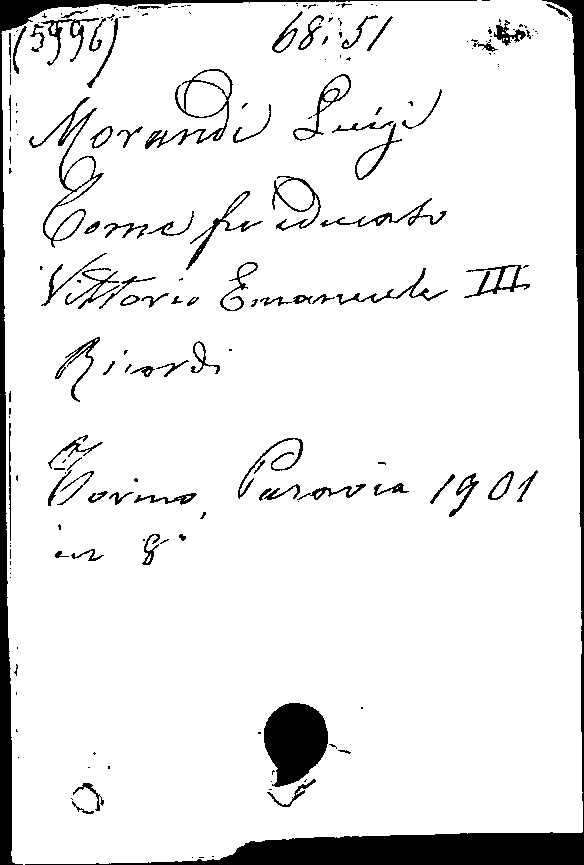 (5996) 68i51
Morandi Luigi
Come fu educato
Vittorio Emanuele III
Ricordi
Torino, Paravia 1901
in 8°